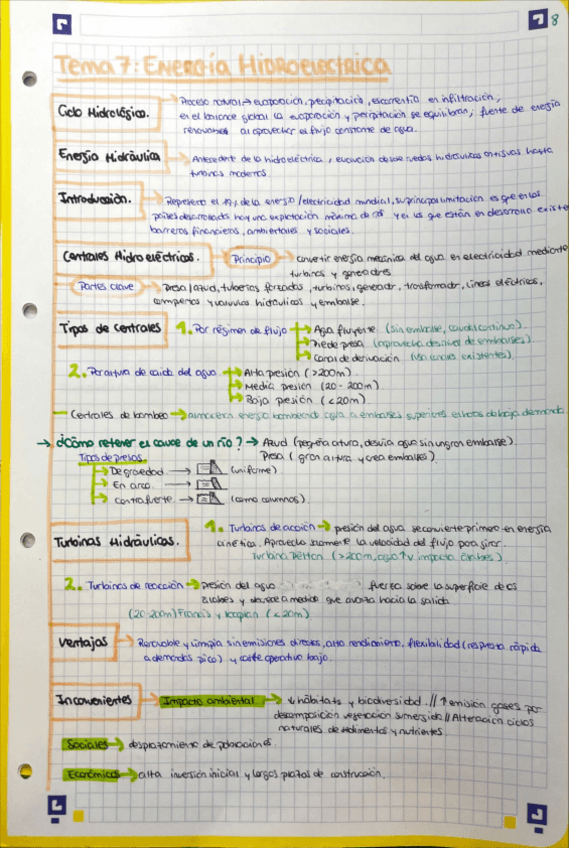 8
Tema 7: Energía Hidroeléctrica
Ciclo Hidrológico. → Proceso natural → evaporación, precipitación, escorrentía en infiltración,
en el balance global la evaporación y precipitación se equilibran, fuente de energía
renovable al aprovechar el flujo constante de agua.
Energía Hidráulica → Antecedente de la hidroeléctrica, evolución desde ruedas hidráulicas antiguas hasta
turbinas modernas.
Introducción. → Representa el de la energía/electricidad mundial, su principal limitación es que en los
países desarrollados hay una explotación máxima de y en los que están en desarrollo existen
barreras financieras, ambientales y sociales.
Centrales Hidroeléctricas. → Principio → convertir energía mecánica del agua en electricidad mediante
turbinas y generadores
Partes clave → Presa/azud, tuberías forzadas, turbinas, generador, transformador, líneas eléctricas,
compuertas y válvulas hidráulicas y embalse.
Tipos de centrales 1. Por régimen de flujo → Agua fluyente (sin embalse, caudal continuo).
→ Pie de presa (aprovecha desnivel de embalses).
→ Canal de derivación (usa canales existentes).
2. Por altura de caída del agua → Alta presión (>200m).
→ Media presión (20-200m)
→ Baja presión (<20m)
Centrales de bombeo → almacenan energía bombeando agua a embalses superiores en horas de baja demanda
→ ¿Cómo retener el cauce de un río? → Azud (pequeña altura, desvía agua sin un gran embalse).
Presa (gran altura y crea embalses).
Tipos de presas.
→ De gravedad → (uniforme)
→ En arco. →
→ Contrafuerte → (como columnas).
Turbinas Hidráulicas. 1. Turbinas de acción → presión del agua se convierte primero en energía
cinética. Aprovecha solamente la velocidad del flujo para girar.
Turbina Pelton (>200m, agua ↑v impacta álabes).
2. Turbinas de reacción → presión del agua fuerza sobre la superficie de los
álabes y decrece a medida que avanza hacia la salida
(20-200m) Francis y Kaplan (<20m)
Ventajas → Renovable y limpia sin emisiones directas, alto rendimiento, flexibilidad (respuesta rápida
a demandas pico) y coste operativo bajo.
Inconvenientes → Impacto ambiental → ↓ hábitats y biodiversidad. // ↑ emisión gases por
descomposición vegetación sumergida // Alteración ciclos
naturales de sedimentos y nutrientes.
Sociales → desplazamiento de poblaciones.
Económicos → alta inversión inicial y largos plazos de construcción.